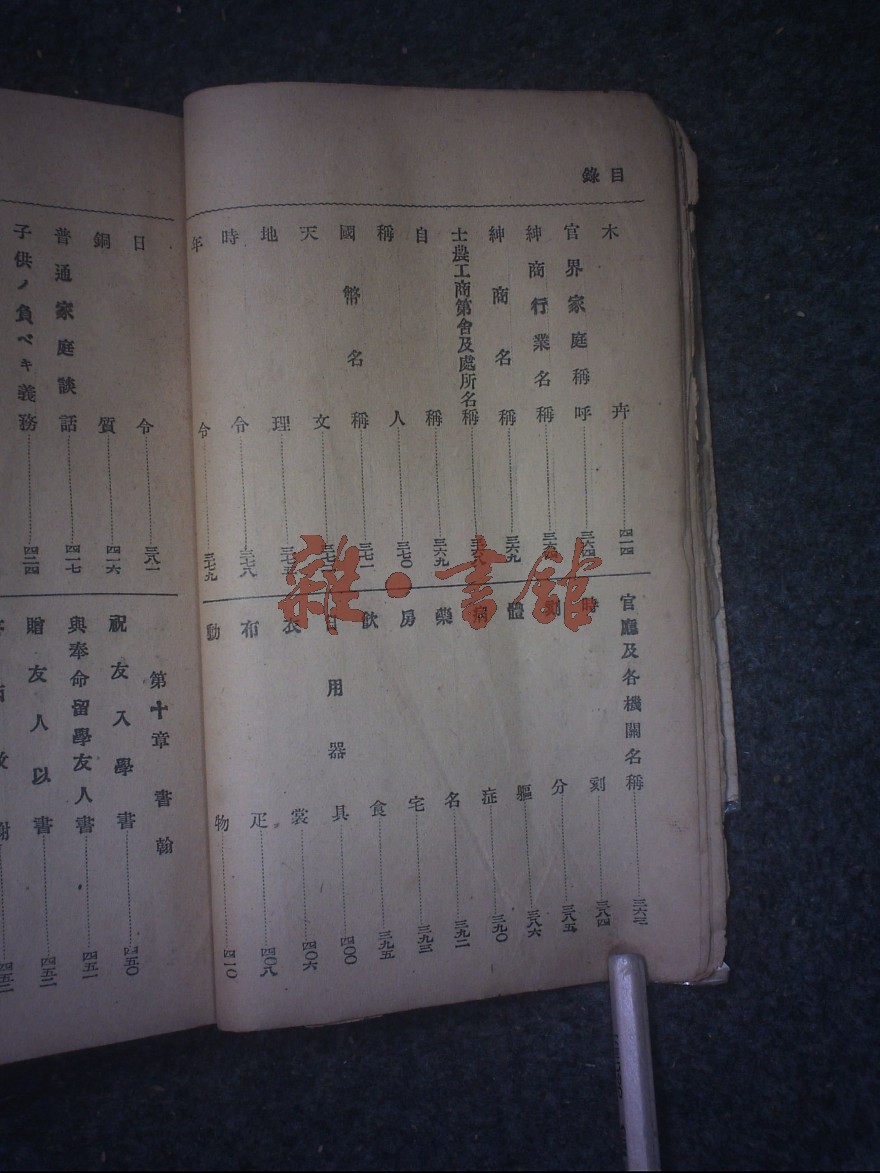 目錄
木卉……四一四
官界家庭稱呼……三六四
紳商行業名稱
紳商名稱……三六九
士農工商第舍及處所名稱
自稱……三六九
稱人……三七〇
國幣名稱……三七一
天文
地理……三七五
時令……三七八
年令……三七九
官廳及各機關名稱……三六三
時刻……三八四
刻分……三八五
體軀……三八六
病症……三九〇
藥名……三九二
房宅……三九三
飲食……三九五
日用器具……四〇〇
衣裳……四〇六
布疋……四〇八
動物……四一〇
日令……三八一
銅質……四一六
普通家庭談話……四一七
子供ノ負ベキ義務……四二四
第十章 書翰
祝友入學書……四五〇
與奉命留學友人書……四五一
贈友人以書……四五二
雜·書館